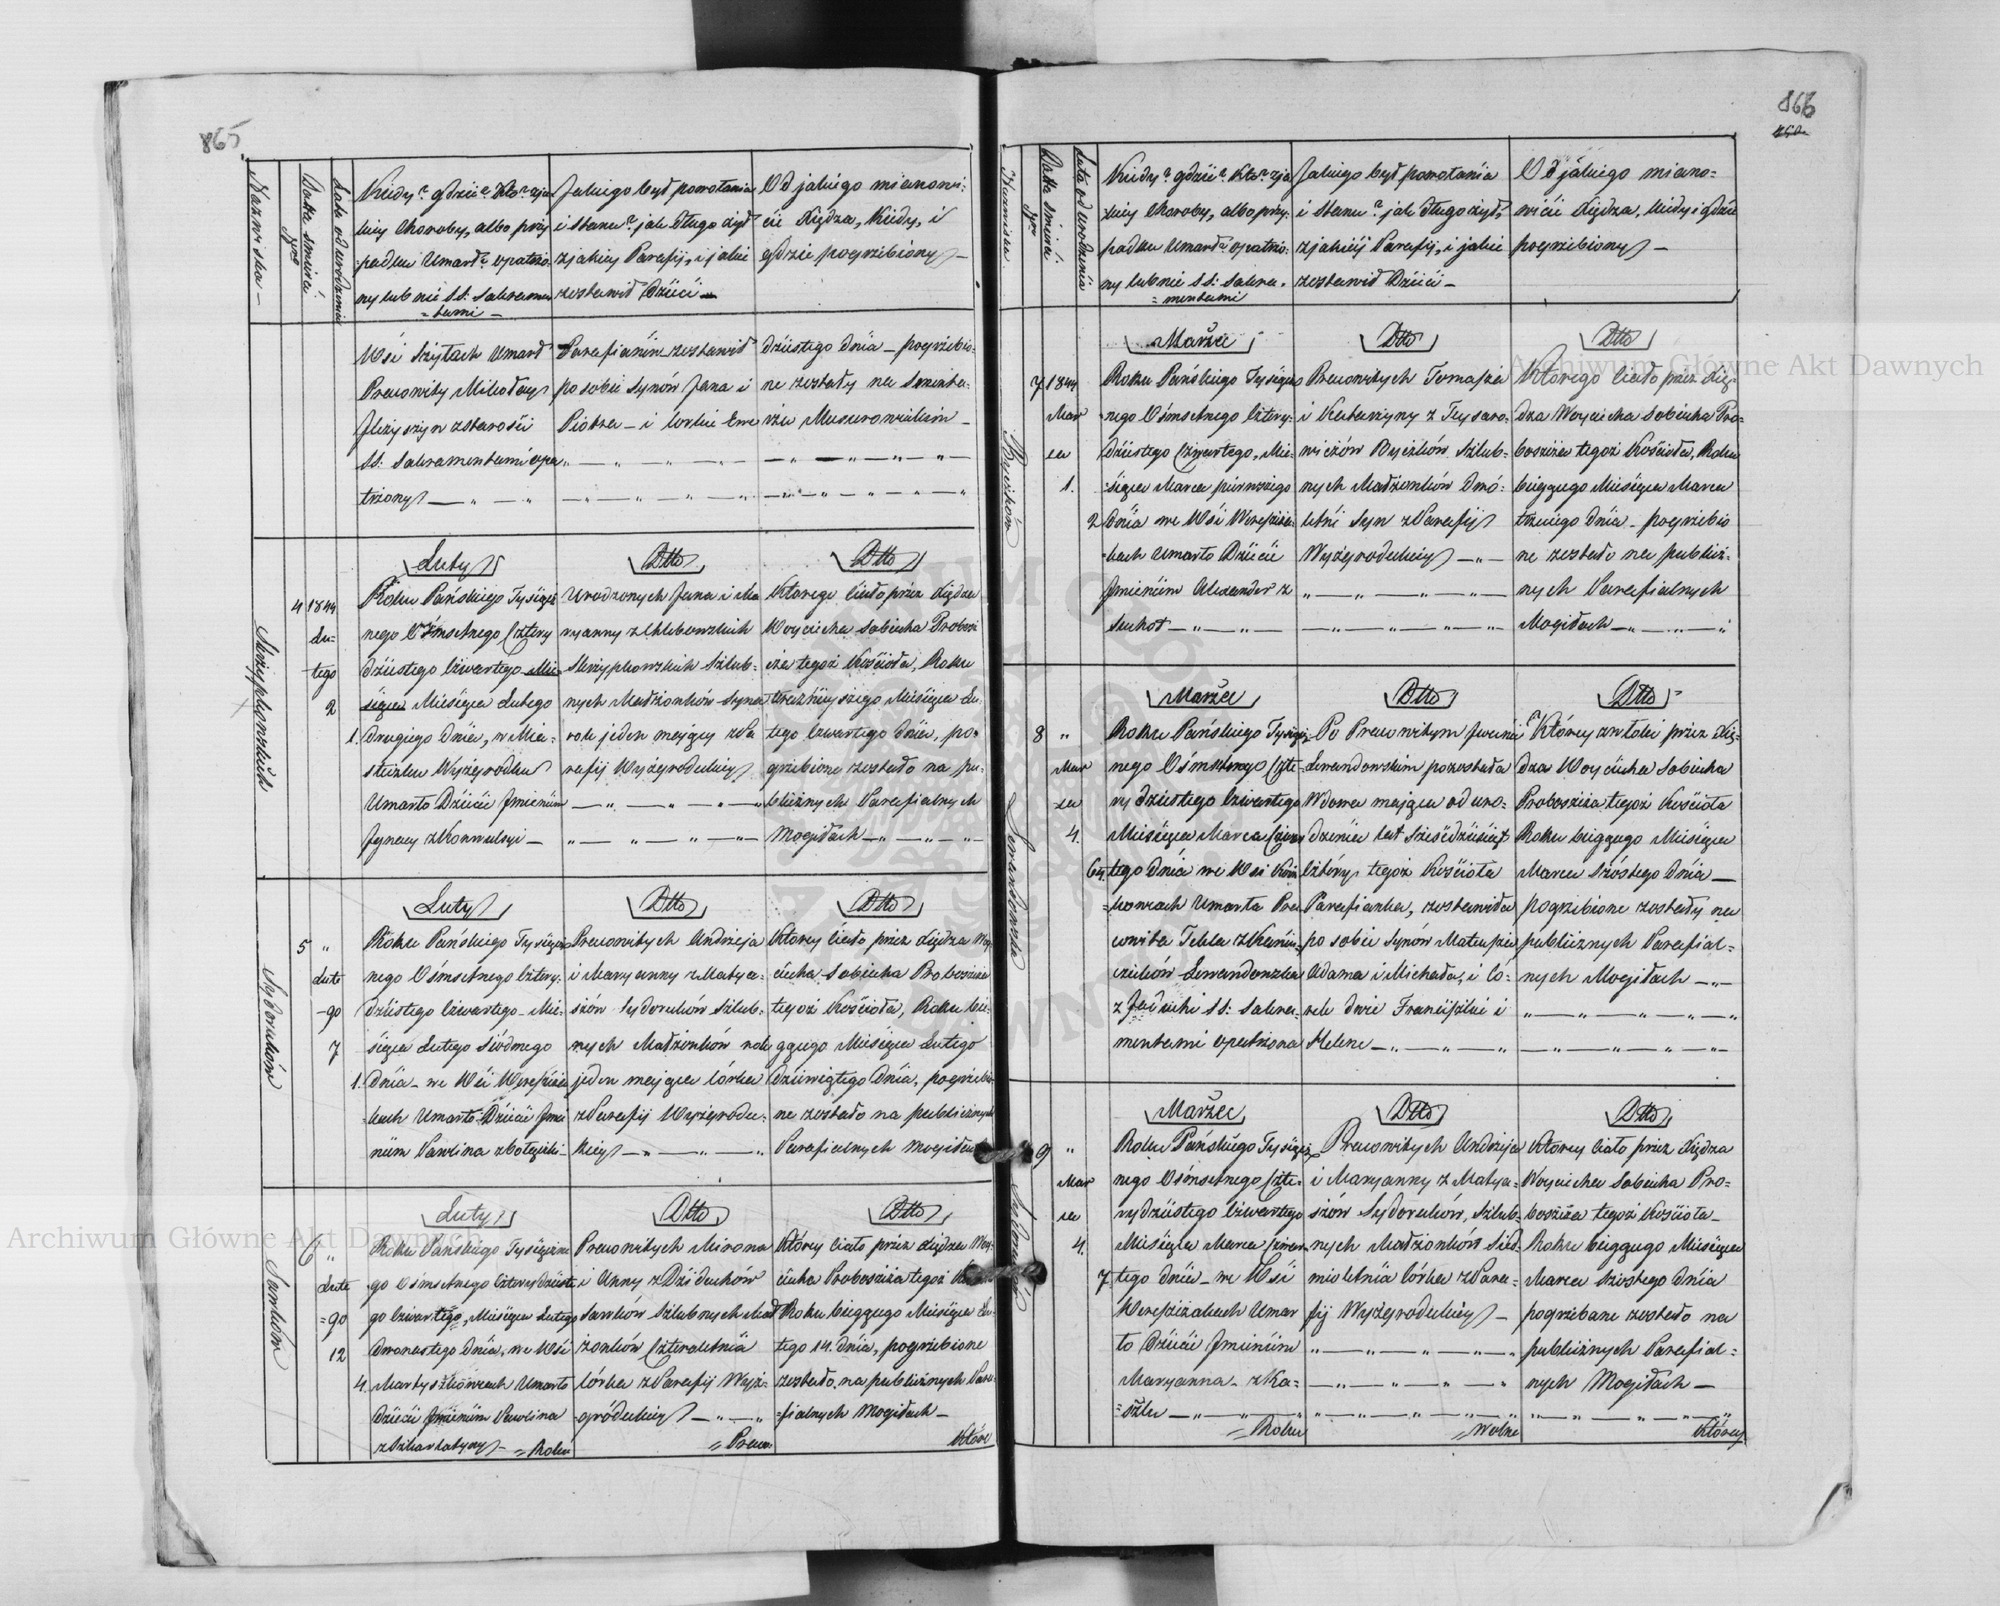 865
Nazwiska
Data śmierci
Lata od urodzenia
Kiedy? gdzie? Kto? z ja
kiey Choroby, albo przy
padku Umarł? opatrzo
ny lub nie SS: Sakramen
tami —
Jakiego był powołania
i stanu? jak długo żył
z jakiey Parafij, i jakie
zostawił Dzieci —
Od jakiego mianowi:
cie Xiędza, Kiedy, i
gdzie pogrzebiony —
Wsi Umarł
Pracowity
z starości
SS: Sakramentami opa
trzony —
Parafianin zostawił
po sobie Synów Jana i
Piotra — i Córkie Ewe
dziestego dnia — pogrzebio
ne zostały na Smenta:
rzu
4
1844
Lu=
tego
2
1.
Luty
Roku Pańskiego Tysiącz
nego Ośmsetnego Cztery
dziestego Czwartego
Miesiąca Lutego
drugiego Dnia, w Mia:
steczku Wyżgrodku
Umarło Dziecie Jmieniem
Jgnacy z Konwulsyi —
Dtto
Urodzonych Jana i Ma
ryanny z Chlebowskich
Skrzypkowskich Szlub:
nych Małżonków Syna
rok jeden mający z Pa
rafij Wyżgrodeckiey
Dtto
Którego Ciało przez Xiędza
Woyciecha Sobiecha Probosz
cza tegoż Kościoła, Roku
teraznieyszego Miesiąca Lu
tego Czwartego Dnia, po=
grzebione zostało na pu
blicznych Parafialnych
Mogiłach
5
"
Lute
-go
7
1.
Sydoruków
Luty
Roku Pańskiego Tysiącz
nego Ośmsetnego Cztery:
dziestego Czwartego — Mie:
siąca Lutego Siódmego
Dnia — we Wsi
kach Umarło Dziecie Jmie
niem Paulina
Dtto
Pracowitych Andrzeja
i Maryanny z Matya:
szów Sydoruków Szlub:
nych Małżonków rok
jeden mająca Córka
z Parafij Wyżgrodec:
kiey
Dtto
Którey Ciało przez Xiędza Woy
ciecha Sobiecha Proboszcza
tegoż Kościoła, Roku bie:
żącego Miesiąca Lutego
dziewiątego Dnia, pogrzebio
ne zostało na publicznych
Parafialnych Mogiłach
6
"
Lute
=go
12
4.
Sawków
Luty
Roku Pańskiego Tysiączne
go Ośmsetnego Czterydzieste
go Czwartego, Miesiąca Lutego
Dwonastego Dnia, we Wsi
Umarło
Dziecie Jmieniem Paulina
z Szkarlatyny — = Roku
Dtto
Pracowitych Mirona
i Anny z Dziduchów
Sawków Szlubnych Mał
żonków Czteroletnia
Córka z Parafij Wyż:
gródeckiey
= Praco
Dtto
Którey Ciało przez Xiędza Woy:
ciecha Proboszcza tegoż
Roku bieżącego Miesiąca Lu
tego 14. dnia, pogrzebione
zostało, na publicznych Para
fialnych Mogiłach —
Które
866
Nazwiska
Data śmierci
Lata od urodzenia
Kiedy? gdzie? Kto? z ja
kiey Choroby, albo przy:
padku Umarł? opatrzo:
ny lub nie SS: Sakra:
= mentami
Jakiego był powołania
i stanu? jak długo żył,
z jakiey Parafij, i jakie
zostawił Dzieci —
Od jakiego miano=
wicie Xiędza, kiedy i gdzie
pogrzebiony —
7
1844
Mar
ca
1.
2
Marzec
Roku Pańskiego Tysiącz
nego Ośmsetnego Cztery:
dziestego Czwartego, Mie:
siąca Marca pierwszego
dnia we Wsi
kach Umarło Dziecie
Jmieniem Alexander z
Suchot
Dtto
Pracowitych Tomasza
i Katarzyny z
wiczów Szlub:
nych Małżonków dwó:
letni Syn z Parafij
Wyżgrodeckiey
Dtto
Którego Ciało przez Xię:
dza Woyciecha Sobiecha Pro=
boszcza tegoż Kościoła, Roku
bieżącego Miesiąca Marca
trzeciego Dnia — pogrzebio
ne zostało na publicz:
nych Parafialnych
Mogiłach
8
"
Mar
ca
4.
64.
Lewandowska
Marzec
Roku Pańskiego Tysiącz
nego Ośmsetnego Czte:
ry dziestego Czwartego
Miesiąca Marca Czwar
tego dnia we Wsi
Umarła Pra
cowita Tekla
Lewandowska
SS: Sakra:
mentami opatrzona
Dtto
Po Pracowitym
Lewandowskim pozostała
Wdowa mająca od uro:
dzenia lat Sześćdziesiąt
Cztéry, tegoż Kościoła
Parafianka, zostawiła
po sobie Synów Mateusza
Adama i Michała, i Có:
rek dwie Franciszkie i
Helene
Dtto
Którey zwłoki przez Xię:
dza Woyciecha Sobiecha
Proboszcza tegoż Kościoła
Roku bieżącego Miesiąca
Marca Szóstego Dnia —
pogrzebione zostały na
publicznych Parafial=
nych Mogiłach
9
"
Mar
ca
4.
7.
Marzec
Roku Pańskiego Tysiącz
nego Ośmsetnego Czte:
rydziestego Czwartego
Miesiąca Marca Czwar
tego dnia — we Wsi
Umar
ło Dziecie Jmieniem
Maryanna — z Ka=
szlu
= Roku
Dtto
Pracowitych Andrzeja
i Maryanny z Matya=
szów Sydoruków, Szlub:
nych Małżonków Sied=
mioletnia Córka z Para:
fij Wyżgrodeckiey —
Dtto
Którey Ciało przez Xiędza
Woyciecha Sobiecha Pro=
boszcza tegoż Kościoła —
Roku bieżącego Miesiąca
Marca szóstego Dnia
pogrzebane zostało na
publicznych Parafial=
nych Mogiłach —
Którey
Archiwum Główne Akt Dawnych
Archiwum Główne Akt Dawnych
Archiwum Główne Akt Dawnych